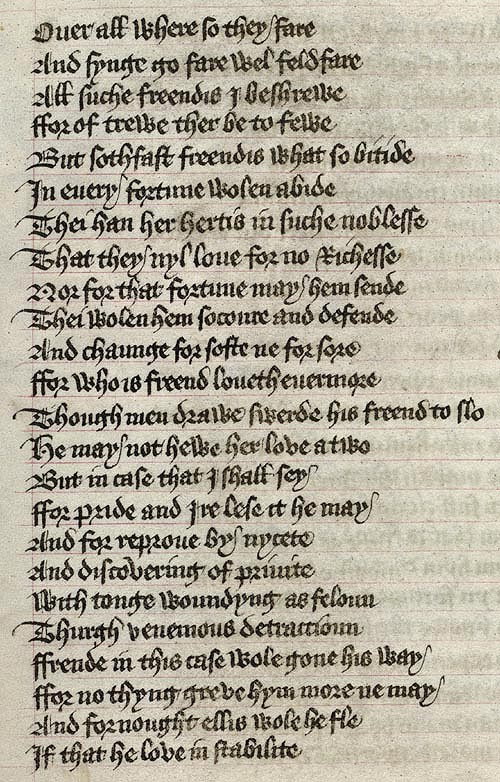 Ouer all where so they fare
And synge go fare wel feldfare
All suche freendis I beshrewe
ffor of trewe ther be to fewe
But sothfast freendis what so bitide
In euery fortune wolen abide
Thei han her hertis in suche noblesse
That they nyl loue for no Richesse
Nor for that fortune may hem sende
Thei wolen hem socoure and defende
And chaunge for softe ne for sore
ffor who is freend loueth euermore
Though men drawe swerde his freend to slo
He may not hewe her love a two
But in case that I shall sey
ffor pride and Ire lese it he may
And for reproue by nycete
And discovering of priuite
With tonge woundyng as feloun
Thurgh venemous detraccioun
ffrende in this case wole gone his way
ffor no thyng greve hym more ne may
And for nought ellis wole he fle
If that he love in stabilite